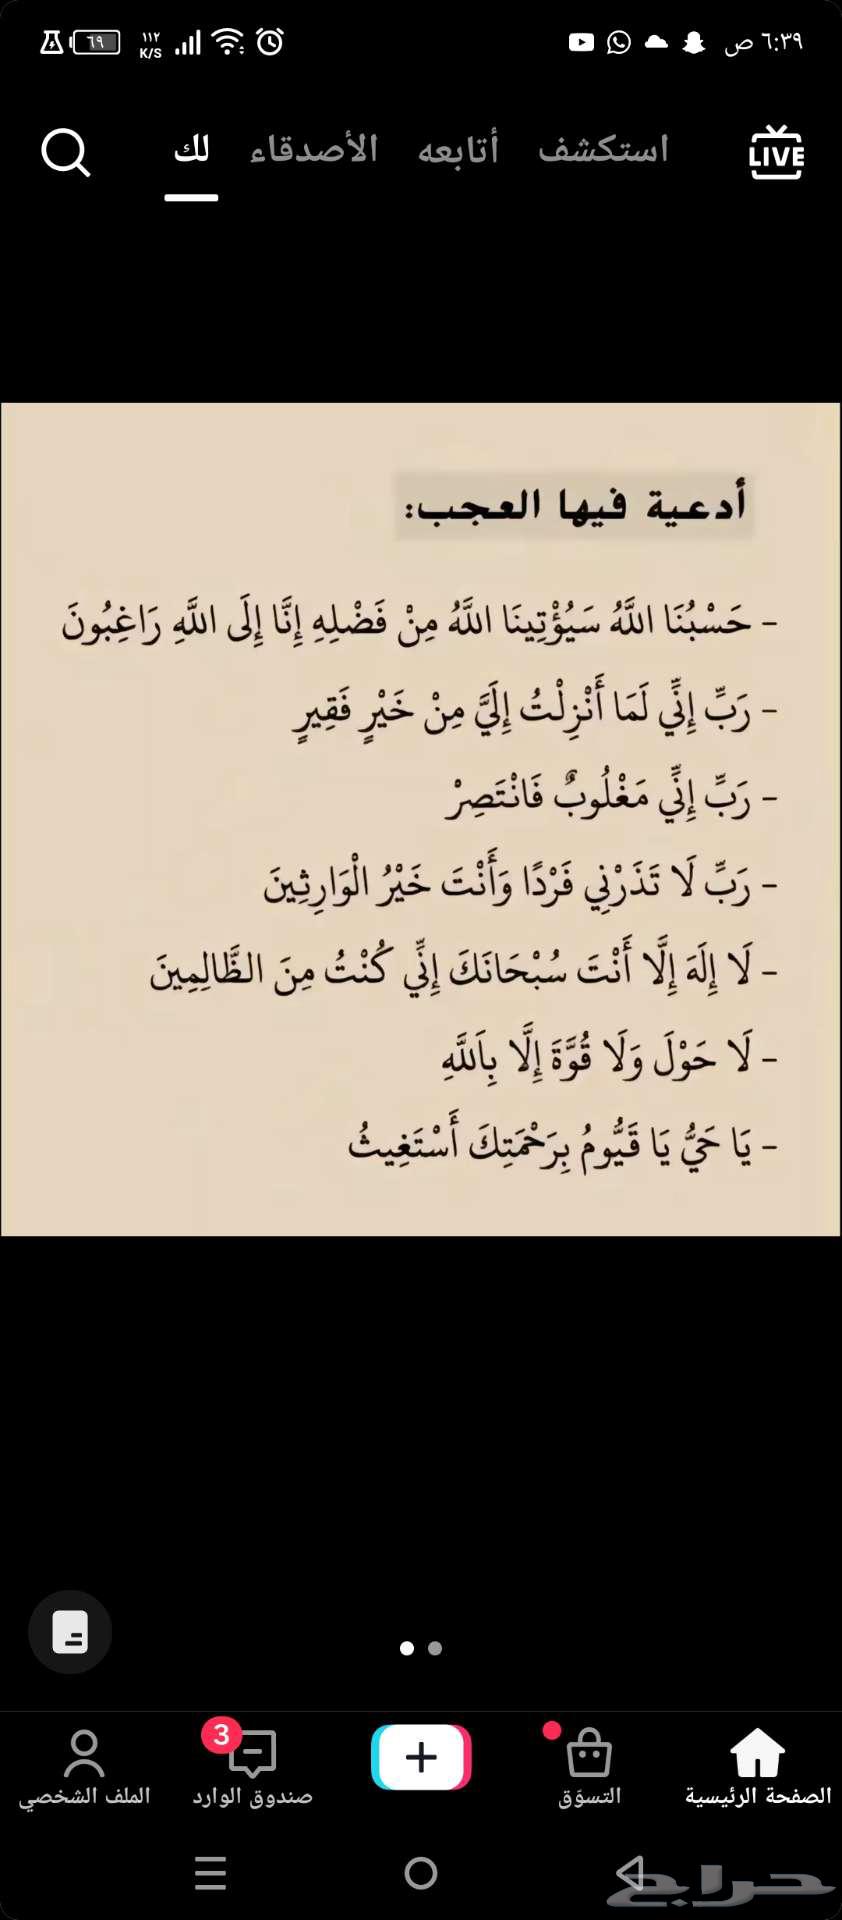 ٦:٣٩ ص
١١٢ K/S
٦٩
LIVE
استكشف أتابعه الأصدقاء لك
أدعية فيها العجب:
- حَسْبُنَا اللَّهُ سَيُؤْتِينَا اللَّهُ مِنْ فَضْلِهِ إِنَّا إِلَى اللَّهِ رَاغِبُونَ
- رَبِّ إِنِّي لَمَا أَنْزِلْتُ إِلَيَّ مِنْ خَيْرٍ فَقِيرٍ
- رَبِّ إِنِّي مَغْلُوبٌ فَانْتَصِرْ
- رَبِّ لَا تَذَرْنِي فَرْدًا وَأَنْتَ خَيْرُ الْوَارِثِينَ
- لَا إِلَهَ إِلَّا أَنْتَ سُبْحَانَكَ إِنِّي كُنْتُ مِنَ الظَّالِمِينَ
- لَا حَوْلَ وَلَا قُوَّةَ إِلَّا بِاَللَّهِ
- يَا حَيُّ يَا قَيُّومُ بِرَحْمَتِكَ أَسْتَغِيثُ
3
الصفحة الرئيسية التسوّق صندوق الوارد الملف الشخصي
حراج